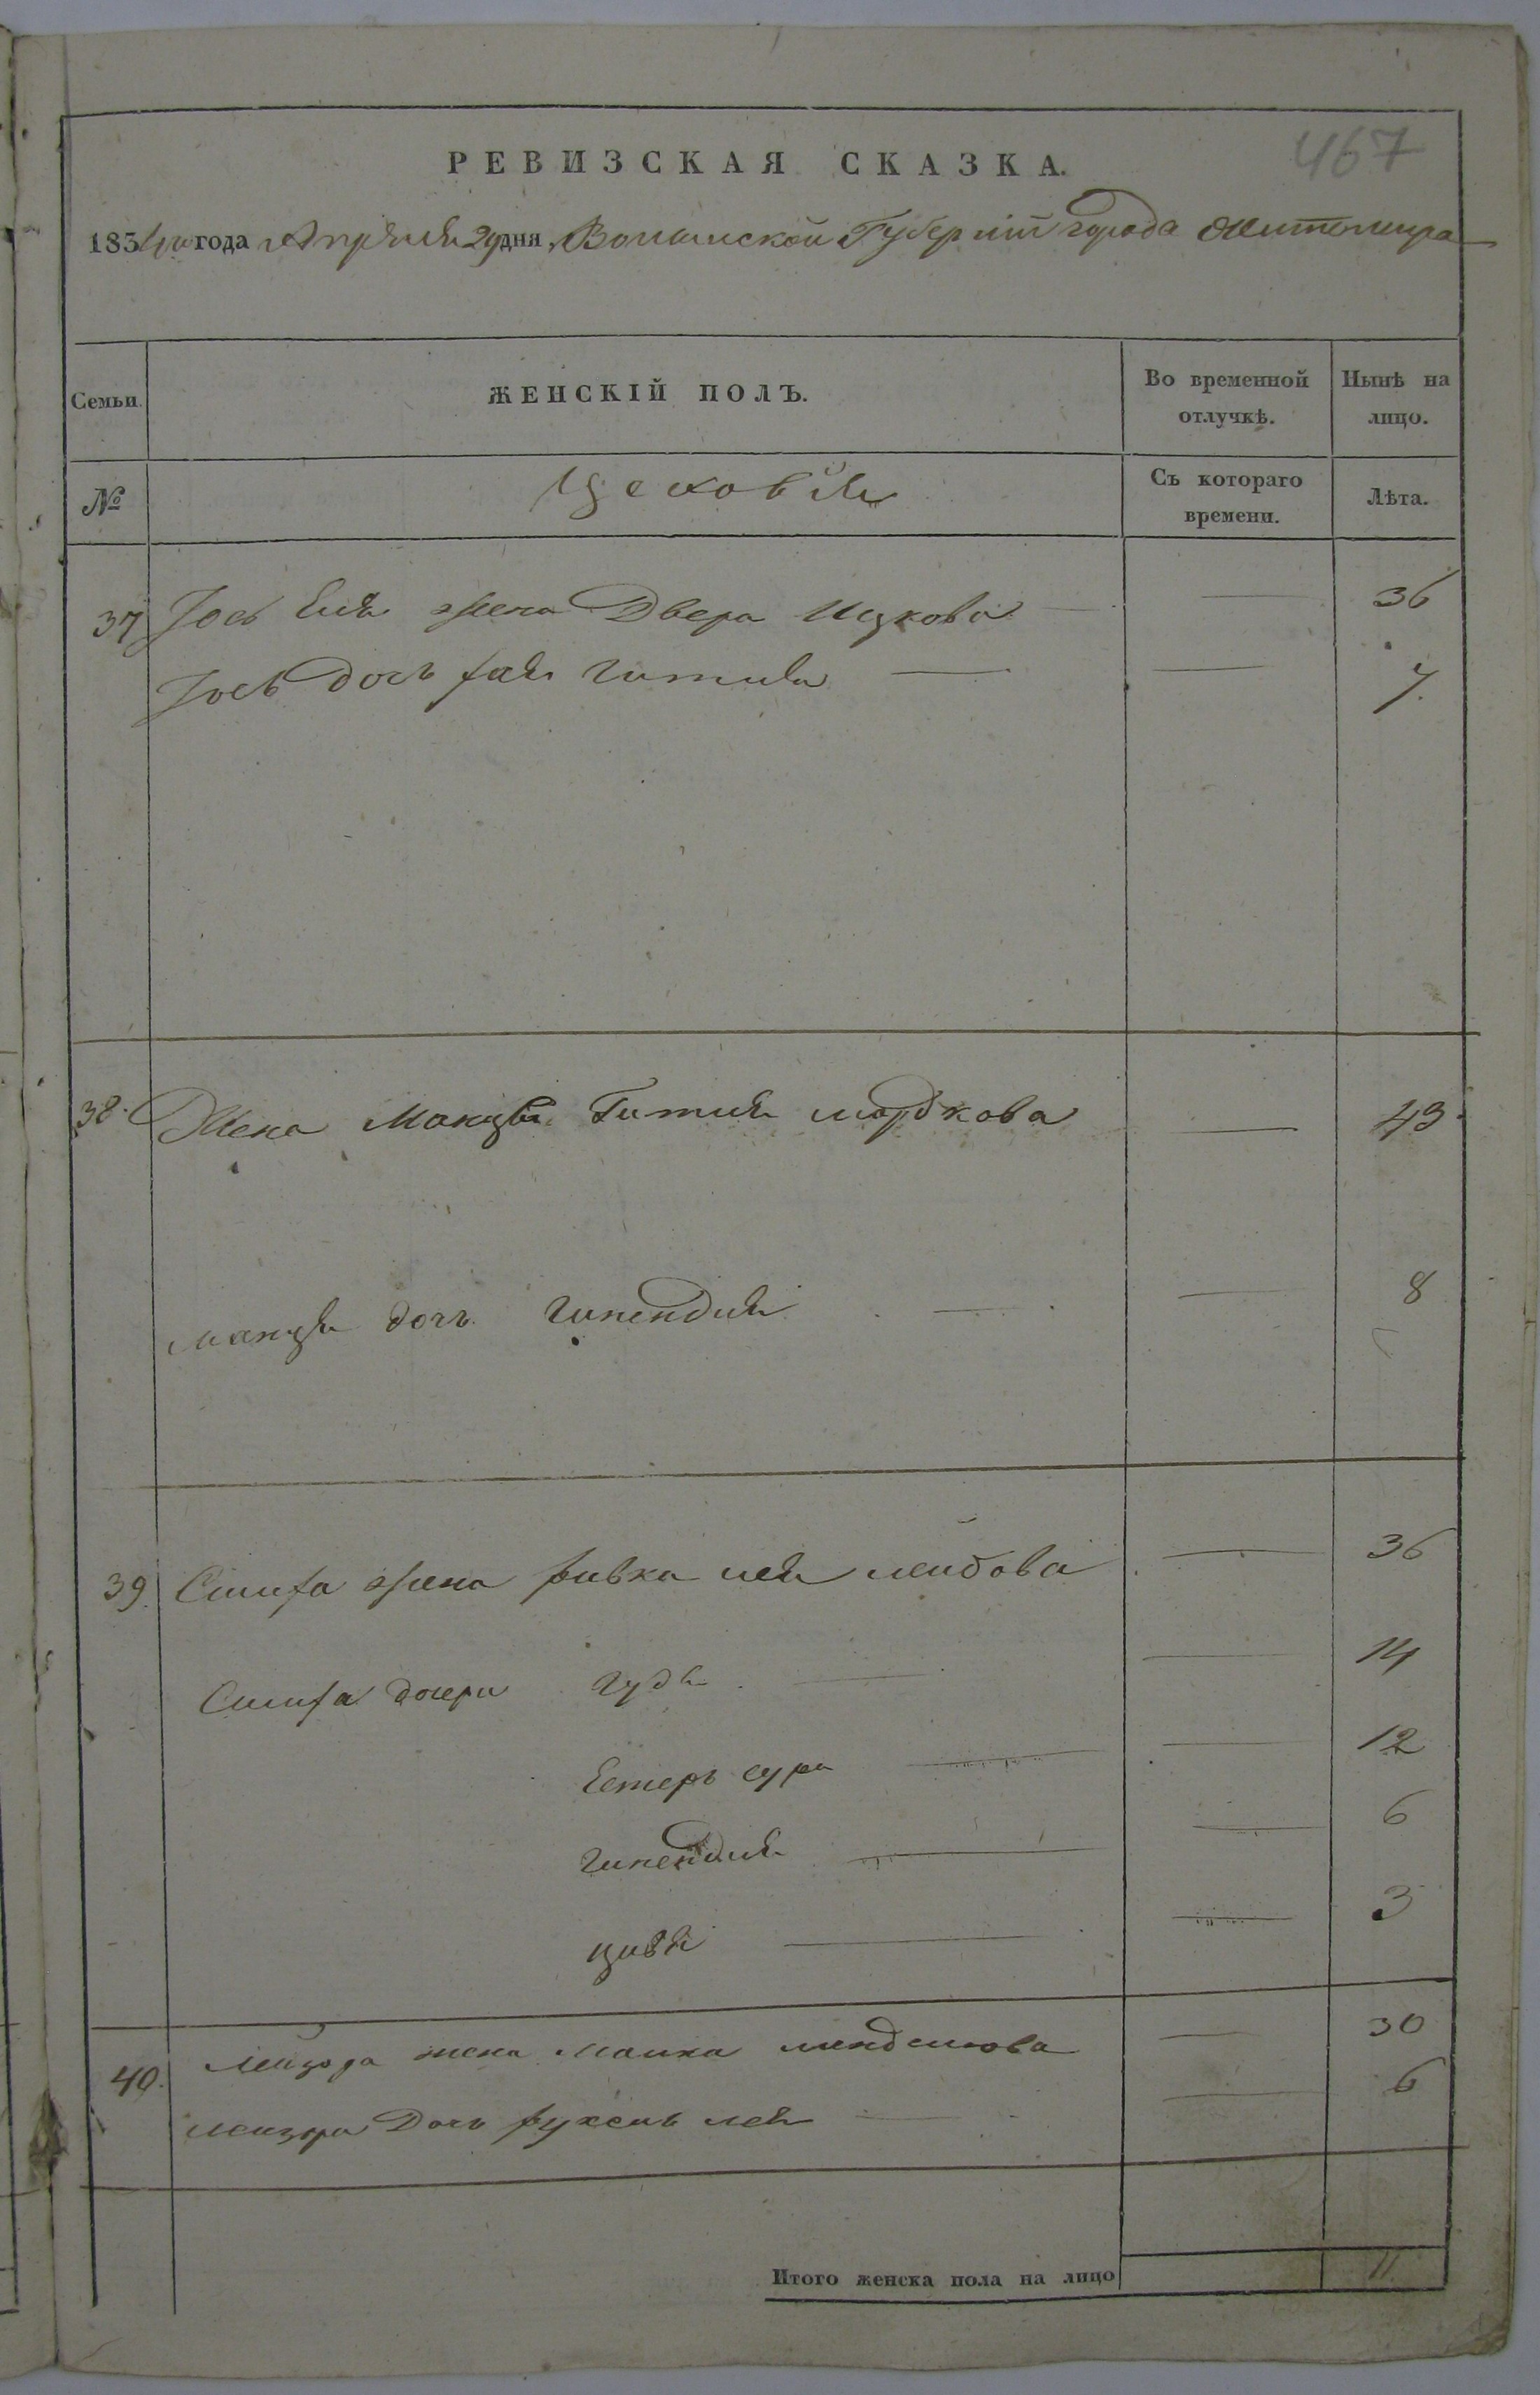 467
РЕВИЗСКАЯ СКАЗКА.
1834го года Апреля 29 дня, Волынской Губерніи города Житомира
Семьи.
ЖЕНСКІЙ ПОЛЪ.
Во временной отлучкѣ.
Нынѣ на лицо.
№
Съ котораго времени.
Лѣта.
37 жена Двера Ицкова — — 36
дочь Гитля — — 7.
38. Жена Гитля мордкова — 43.
дочь Гинендля — — 8
39. жена ривка лея лейбова — 36
дочери — — 14
Естеръ сура — — 12
гинендля — — 6
цивя — — 3
40. жена Малка менделюва — 30
Дочь рухель лея — — 6
Итого женска пола на лицо 11